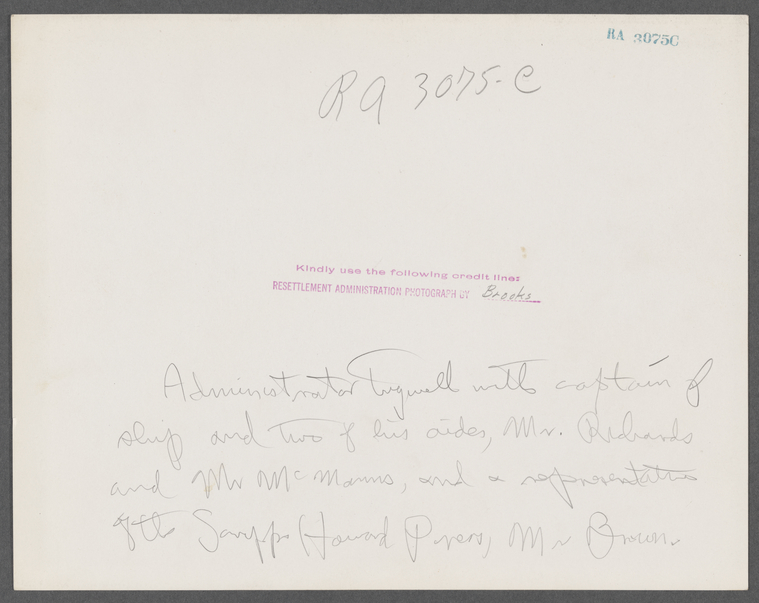 RA 3075C
RA 3075-C
Kindly use the following credit line:
RESETTLEMENT ADMINISTRATION PHOTOGRAPH BY Brooks
Administrator Tugwell with captain of
ship and two of his aides, Mr. Richards
and Mr Mc Manus, and a representative
of the Scripps Howard Papers, Mr Brown.